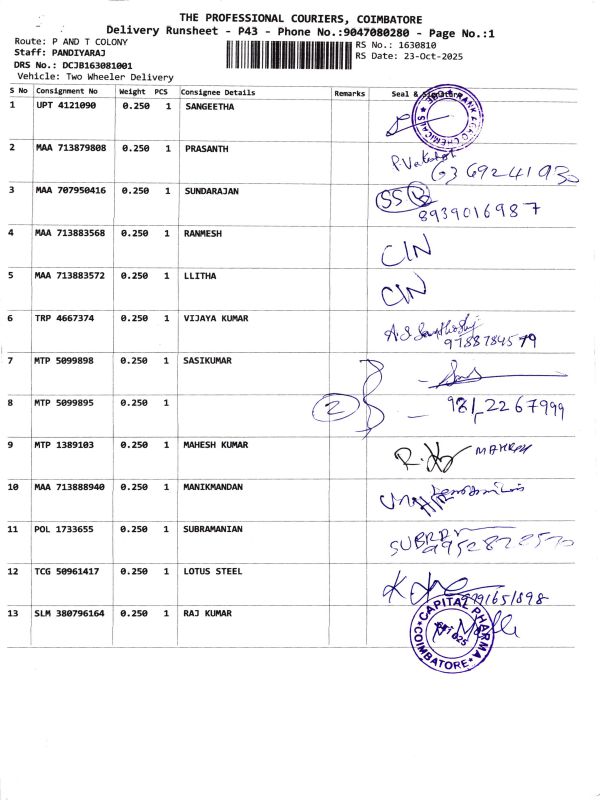 THE PROFESSIONAL COURIERS, COIMBATORE
Delivery Runsheet - P43 - Phone No.:9047080280 - Page No.:1
Route: P AND T COLONY
RS No.: 1630810
Staff: PANDIYARAJ
RS Date: 23-Oct-2025
DRS No.: DCJB163081001
Vehicle: Two Wheeler Delivery
S No Consignment No Weight PCS Consignee Details Remarks Seal &
1 UPT 4121090 0.250 1 SANGEETHA
2 MAA 713879808 0.250 1 PRASANTH
6369241930
3 MAA 707950416 0.250 1 SUNDARAJAN
SS
8939016987
4 MAA 713883568 0.250 1 RANMESH
CIN
5 MAA 713883572 0.250 1 LLITHA
CIN
6 TRP 4667374 0.250 1 VIJAYA KUMAR
7 MTP 5099898 0.250 1 SASIKUMAR
8 MTP 5099895 0.250 1
2
9 MTP 1389103 0.250 1 MAHESH KUMAR
10 MAA 713888940 0.250 1 MANIKMANDAN
11 POL 1733655 0.250 1 SUBRAMANIAN
12 TCG 50961417 0.250 1 LOTUS STEEL
13 SLM 380796164 0.250 1 RAJ KUMAR
CAPITAL PHARMA
COIMBATORE